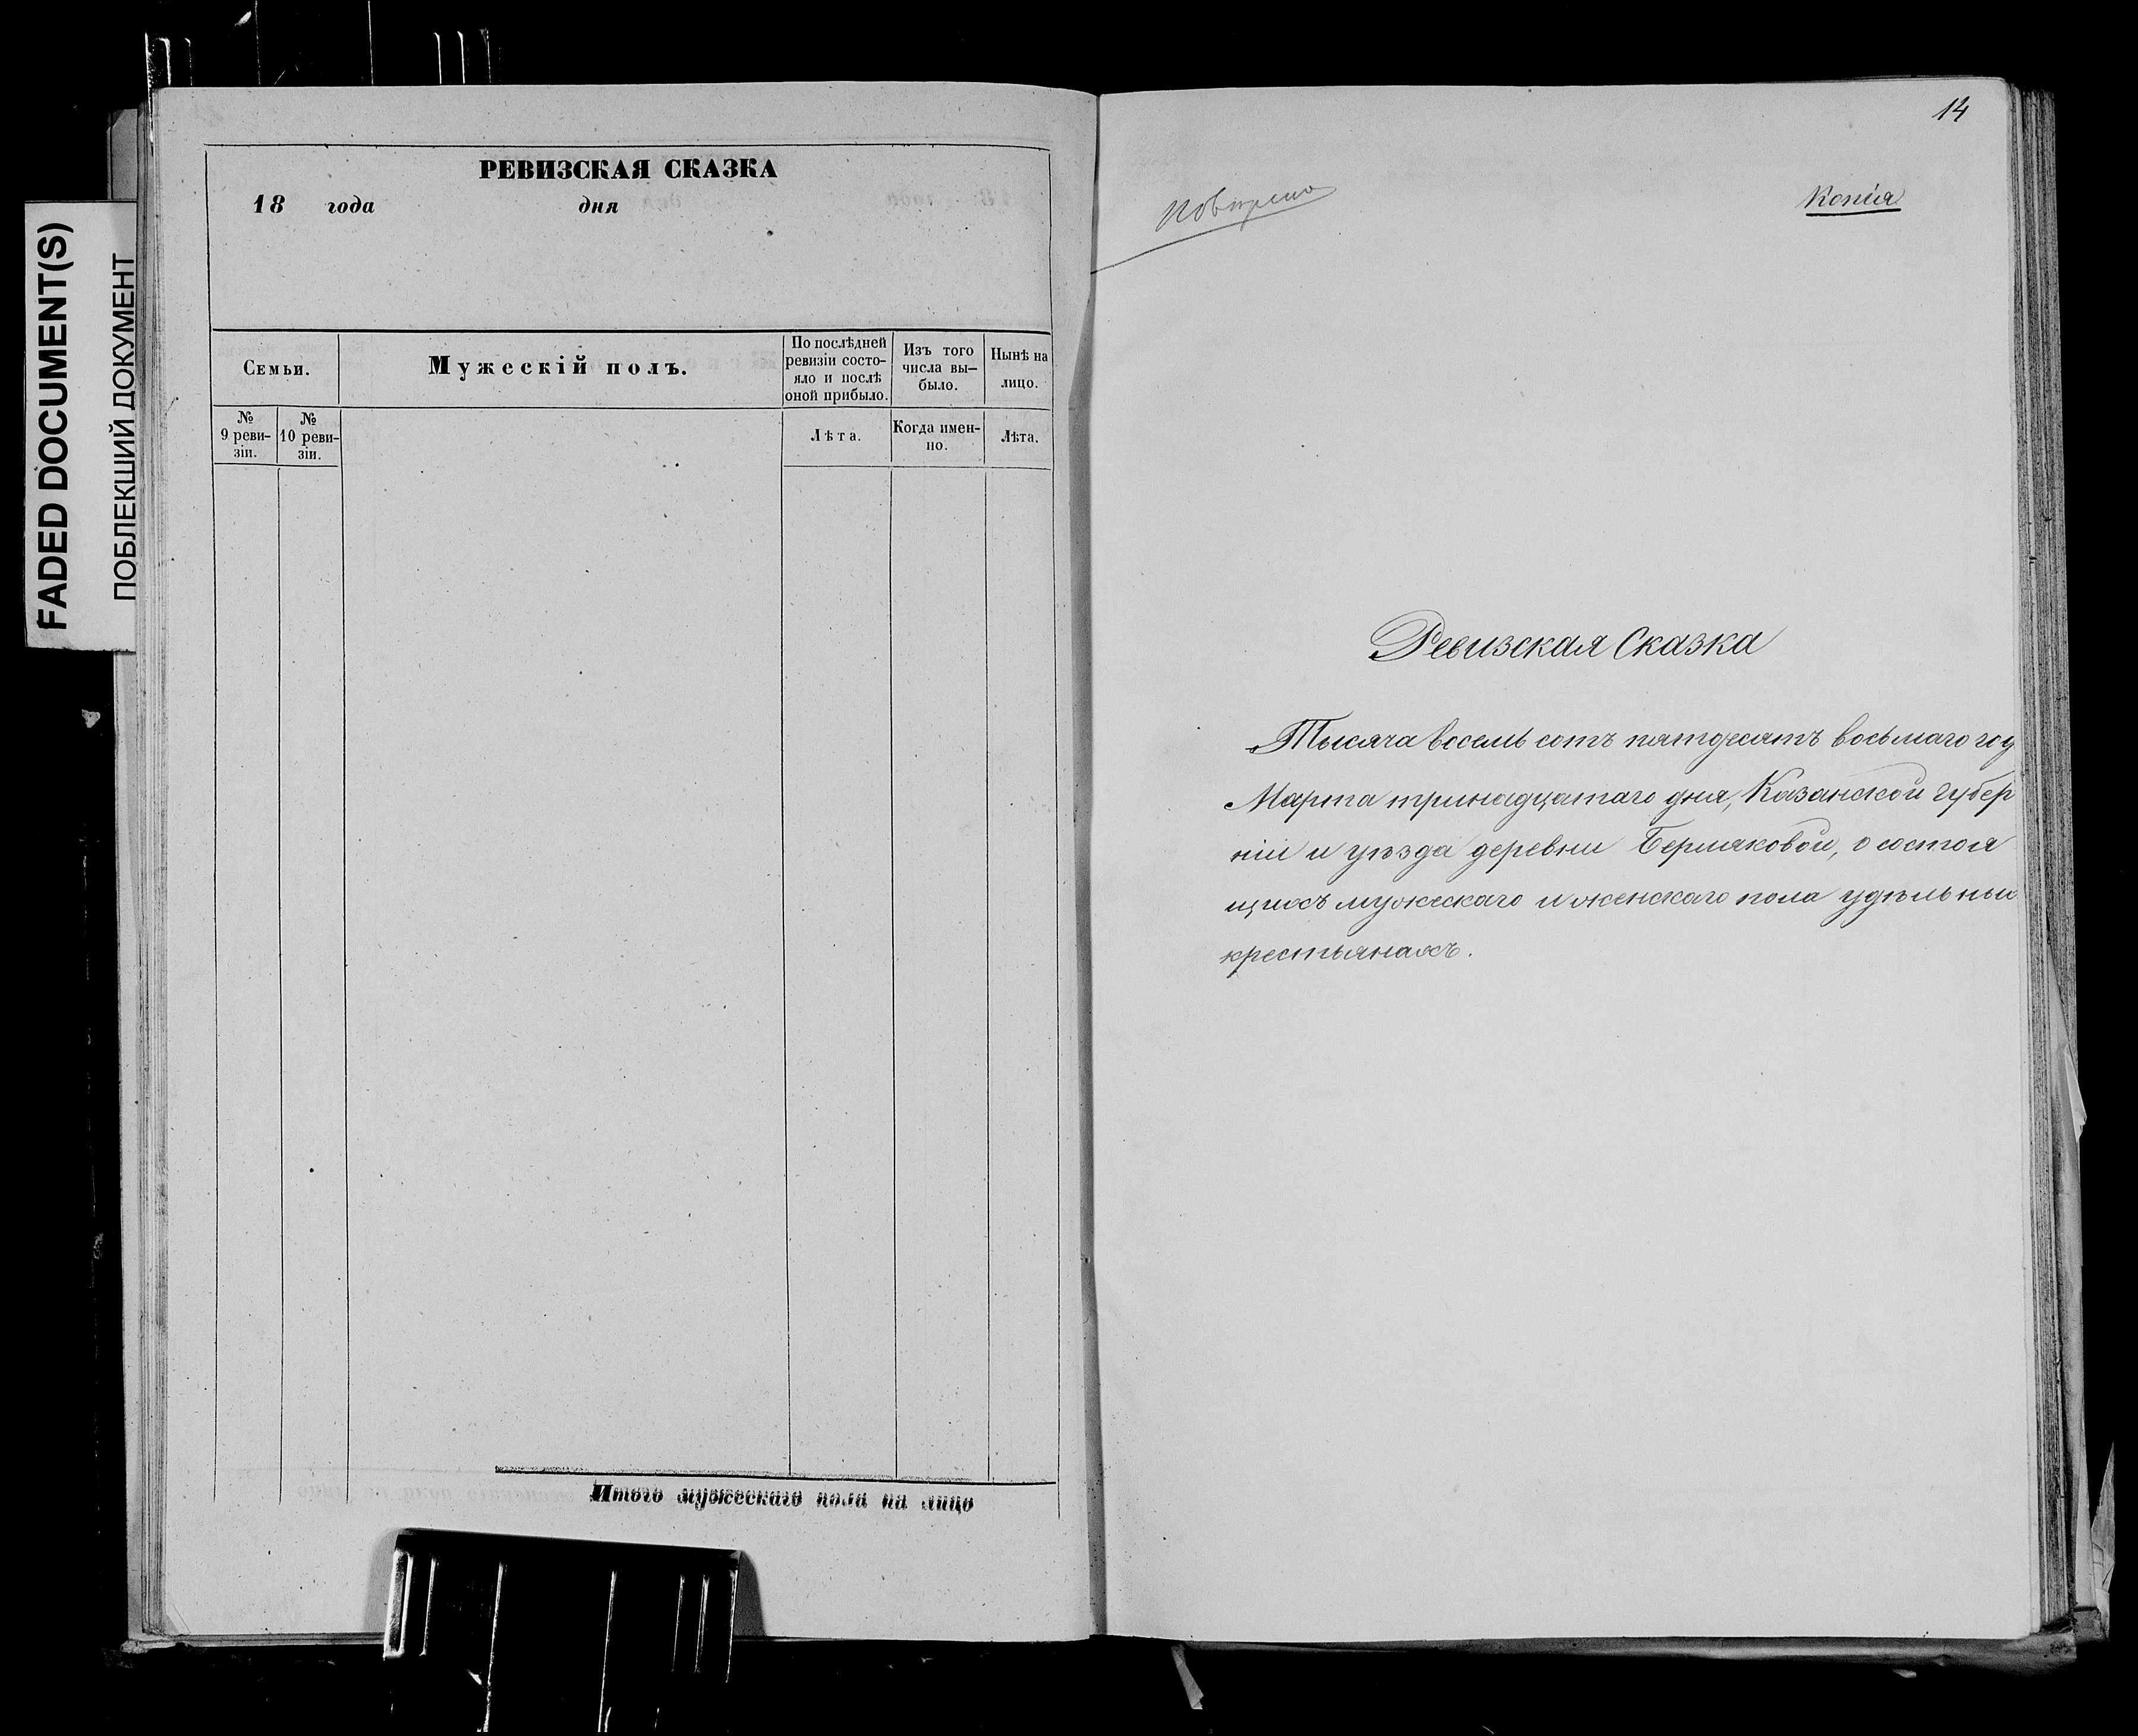 FADED DOCUMENT(S)
ПОБЛЕКШИЙ ДОКУМЕНТ
РЕВИЗСКАЯ СКАЗКА
18 года дня
Семьи.
Мужескій полъ.
По послѣдней
ревизіи состо-
яло и послѣ
оной прибыло.
Изъ того
числа вы-
было.
Нынѣ на
лицо.
№
9 реви-
зіи.
№
10 реви-
зіи.
Лѣта.
Когда имен-
но.
Лѣта.
Итого мужескаго пола на лицо
14
повѣрено
Копія
Ревизская Сказка
Тысяча восемь сотъ пятдесятъ восьмаго год
Марта тринадцатаго дня, Казанской губер
ніи и уѣзда деревни Бермяковой, о состоя
щихъ мужескаго и женскаго пола удѣльны
крестьянахъ.